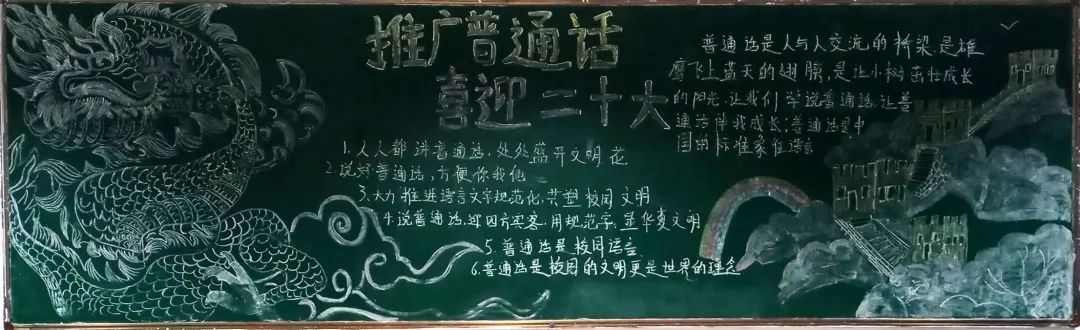 推广普通话
喜迎二十大
1.人人都讲普通话,处处盛开文明花
2.说好普通话,方便你我他
3.大力推进语言文字规范化,共塑校园文明
4.说普通话,迎四方宾客,用规范字,显华夏文明
5.普通话是校园语言
6.普通话是校园的文明更是世界的理念
普通话是人与人交流的桥梁是雄
鹰飞上蓝天的翅膀,是让小树茁壮成长
的阳光.让我们学说普通话,让普
通话伴我成长;普通话是中
国的标准家住语言